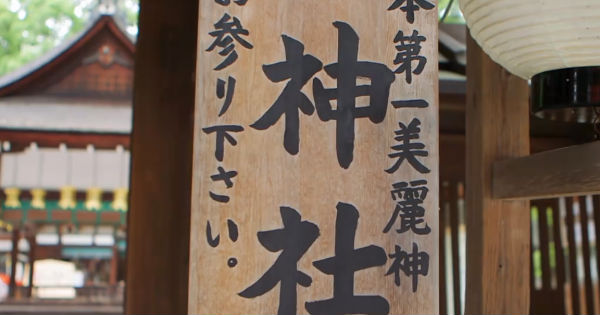 本第一美麗神
神社
お参り下さい。